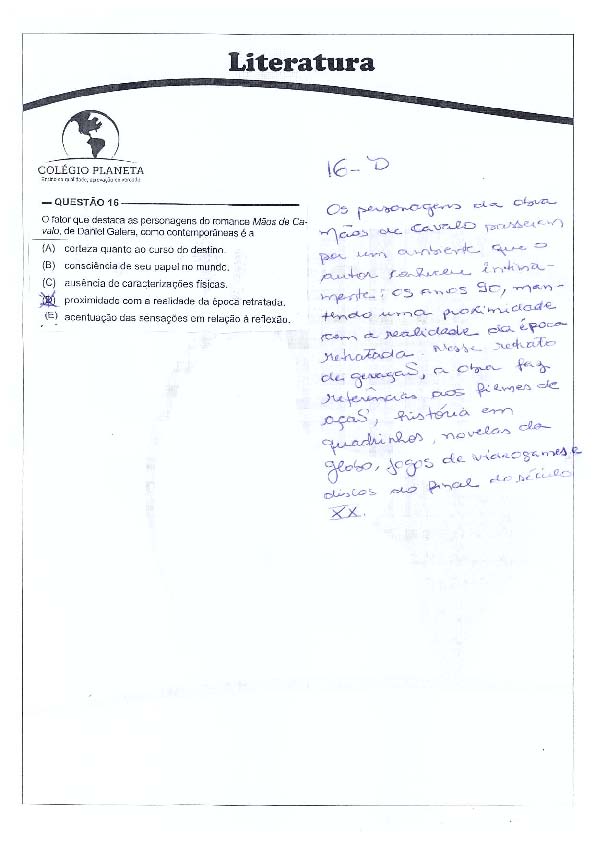 Literatura
COLÉGIO PLANETA
QUESTÃO 16
O fator que destaca as personagens do romance Mãos de Ca-
valo, de Daniel Galera, como contemporâneas é a
(A) certeza quanto ao curso do destino.
(B) consciência de seu papel no mundo.
(C) ausência de caracterizações físicas.
(D) proximidade com a realidade da época retratada.
(E) acentuação das sensações em relação à reflexão.
16 - D
Os personagens da obra
Mãos de Cavalo passeiam
por um ambiente que o
autor conhece intima-
mente: os anos 90, man-
tendo uma proximidade
com a realidade da época
retratada. Nesse retrato
de geração, a obra faz
referências aos filmes de
ação, história em
quadrinhos, novelas da
globo, jogos de videogames e
discos do final do século
XX.